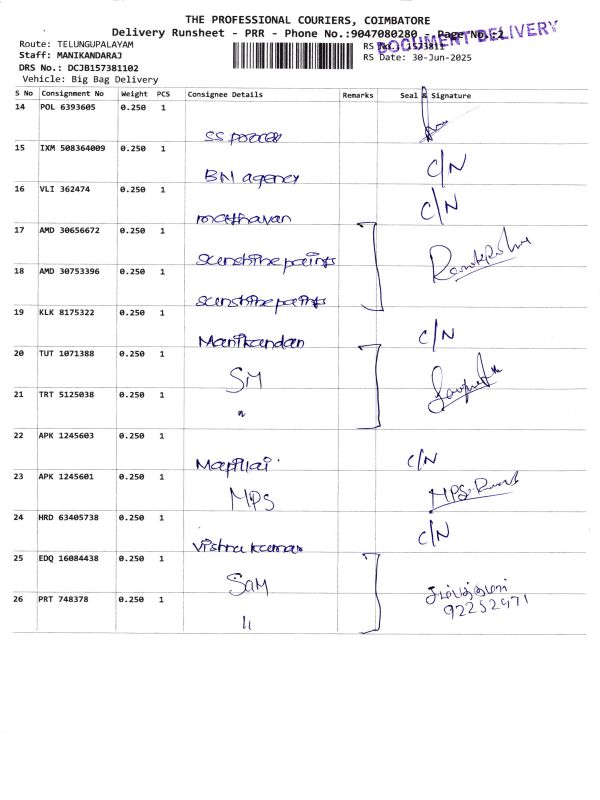 THE PROFESSIONAL COURIERS, COIMBATORE
Delivery Runsheet - PRR - Phone No.:9047080280 Page No.:2
DOCUMENT DELIVERY
Route: TELUNGUPALAYAM
RS No.: 1573811
Staff: MANIKANDARAJ
RS Date: 30-Jun-2025
DRS No.: DCJB157381102
Vehicle: Big Bag Delivery
S No Consignment No Weight PCS Consignee Details Remarks Seal & Signature
14 POL 6393605 0.250 1
SS
15 IXM 508364009 0.250 1
BM agency C/N
16 VLI 362474 0.250 1
mathavan C/N
17 AMD 30656672 0.250 1
sunshine paints
18 AMD 30753396 0.250 1
sunshine paints
19 KLK 8175322 0.250 1
Manikandan C/N
20 TUT 1071388 0.250 1
SM
21 TRT 5125038 0.250 1
"
22 APK 1245603 0.250 1
Mapillai C/N
23 APK 1245601 0.250 1
MPS MPS
24 HRD 63405738 0.250 1
vishnu kumar C/N
25 EDQ 16084438 0.250 1
SAM
26 PRT 748378 0.250 1
" 92252971